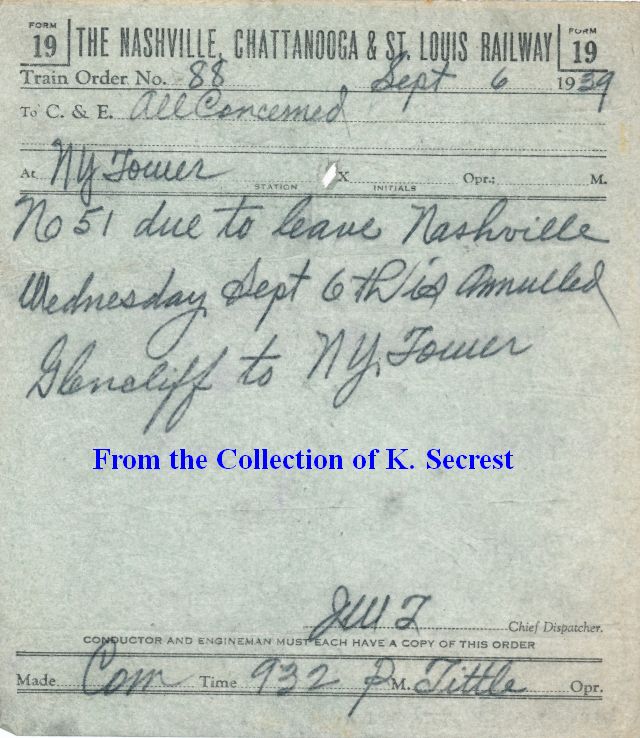 FORM 19 THE NASHVILLE, CHATTANOOGA & ST. LOUIS RAILWAY FORM 19
Train Order No. 88 Sept 6 1939
To C. & E. All Concerned
At NY Tower STATION X INITIALS Opr.; M.
No 51 due to leave Nashville
Wednesday Sept 6th is Annulled
Glencliff to NY Tower
From the Collection of K. Secrest
JWT Chief Dispatcher.
CONDUCTOR AND ENGINEMAN MUST EACH HAVE A COPY OF THIS ORDER
Made Com Time 932 P M. Tittle Opr.